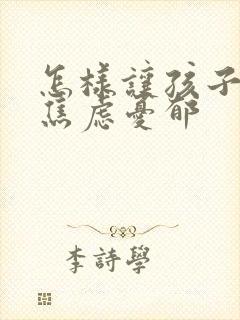 怎樣讓孩子
焦慮憂郁
李詩學